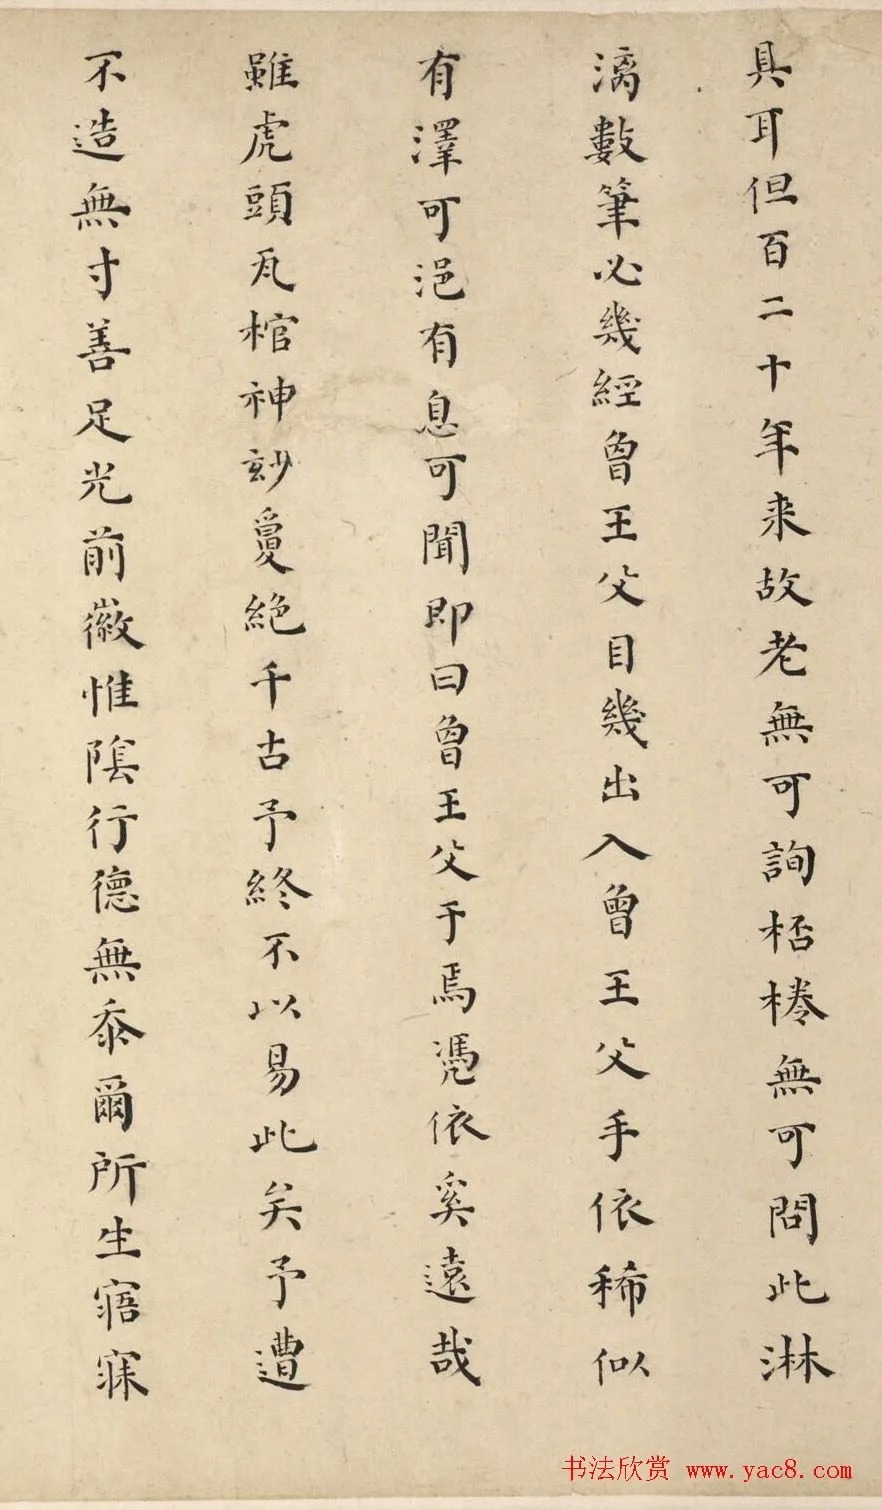 具耳但百二十年来故老無可詢桮棬無可問此淋
漓數筆必幾經曾王父目幾出入曾王父手依稀似
有澤可浥有息可聞即曰曾王父于焉憑依奚遠哉
雖虎頭瓦棺神妙敻絶千古予終不以易此矣予遭
不造無寸善足光前徽惟陰行德無忝爾所生寤寐
书法欣赏 www.yac8.com